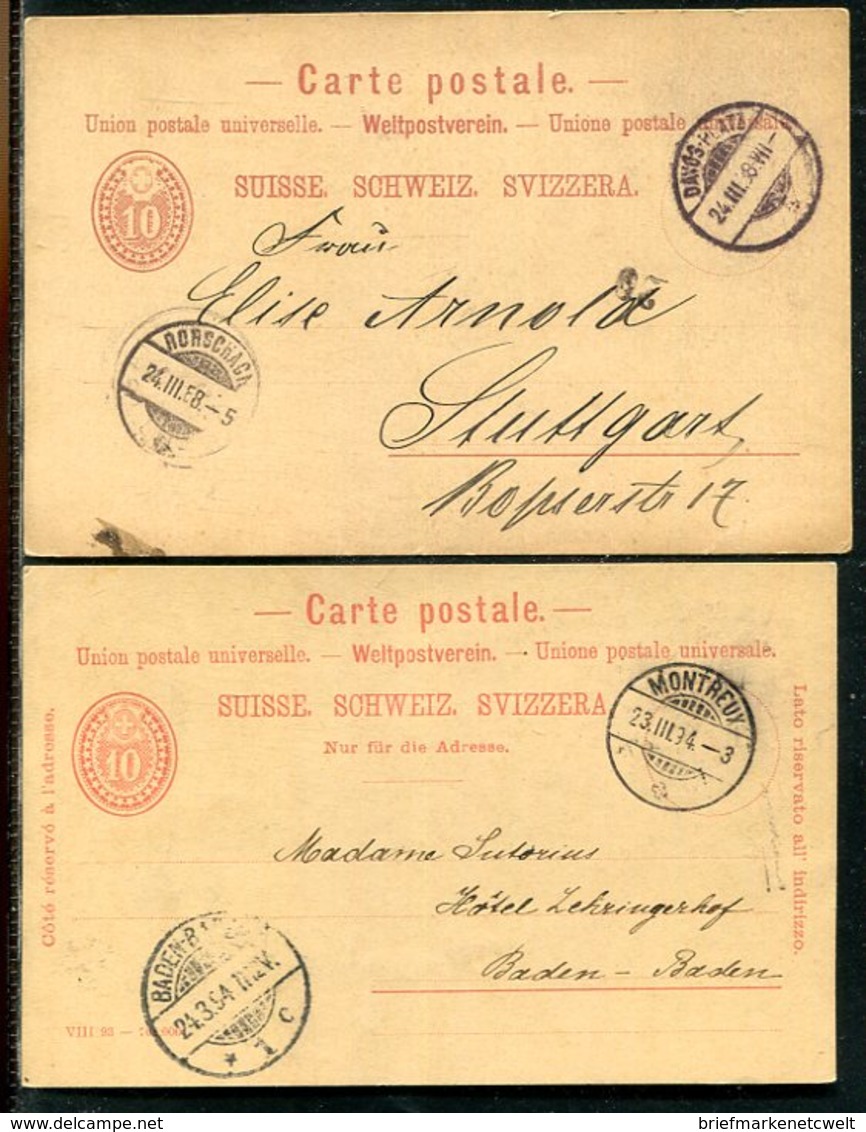 — Carte postale. —
Union postale universelle. — Weltpostverein. — Unione postale universale.
SUISSE. SCHWEIZ. SVIZZERA.
10
DAVOS-PLATZ
24.III.88.VII-
Frau
Elise Arnold
Stuttgart,
Bopserstr 17
RORSCHACH
24.III.88.-5
— Carte postale. —
Union postale universelle. — Weltpostverein. — Unione postale universale.
SUISSE. SCHWEIZ. SVIZZERA
Nur für die Adresse.
10
MONTREUX
23.III.94.-3
Côté réservé à l'adresse.
Lato riservato all' indirizzo.
Madame Sutorius
Hôtel Zehringerhof
Baden - Baden
BADEN-
24.3.94.11-12V.
* 1 c
VIII 93 —
briefmarkenetcwelt